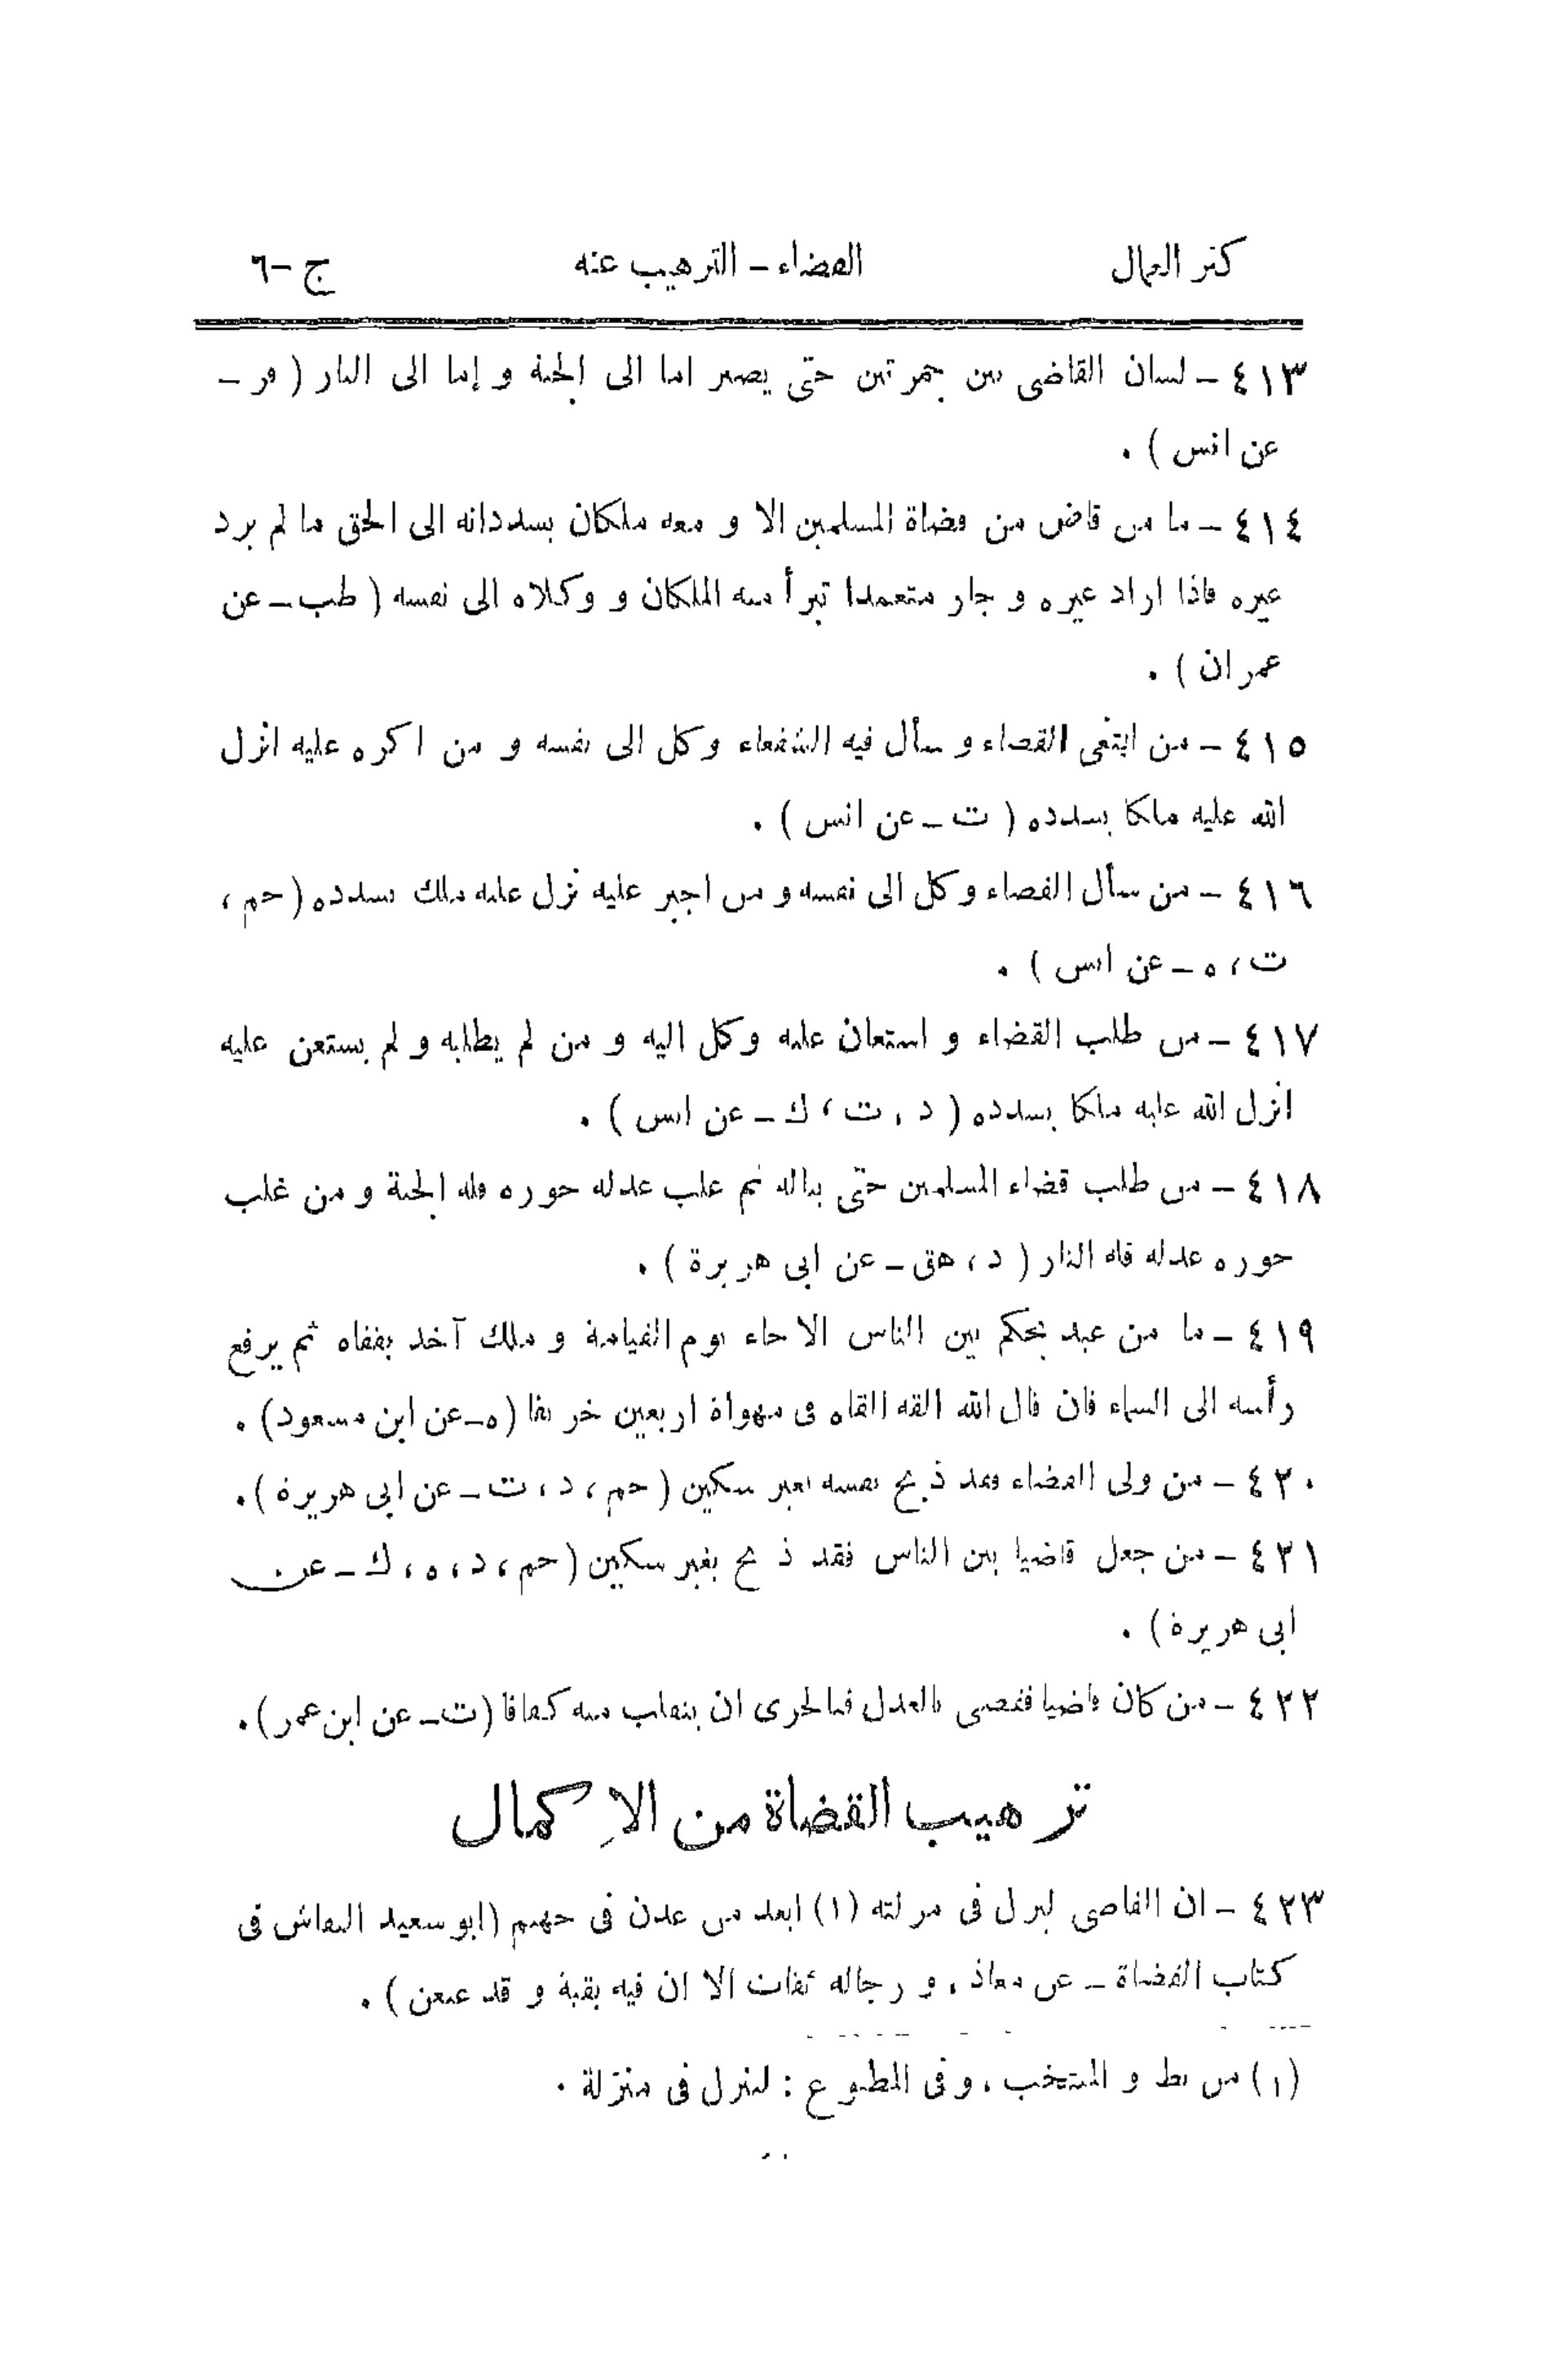 كنز العمال القضاء – الترهيب عنه ج – ٦
٤١٣ – لسان القاضى بين جمرتين حتى يصير اما الى الجنة و إما الى النار ( فر –
عن انس ) .
٤١٤ – ما من قاض من قضاة المسلمين الا و معه ملكان يسددانه الى الحق ما لم يرد
غيره فاذا اراد غيره و جار متعمدا تبرأ منه الملكان و وكلاه الى نفسه ( طب – عن
عمران ) .
٤١٥ – من ابتغى القضاء و سأل فيه الشفعاء وكل الى نفسه و من اكره عليه انزل
الله عليه ملكا يسدده ( ت – عن انس ) .
٤١٦ – من سأل القضاء وكل الى نفسه و من اجبر عليه نزل عليه ملك يسدده ( حم ،
ت ، ه – عن انس ) .
٤١٧ – من طلب القضاء و استعان عليه وكل اليه و من لم يطلبه و لم يستعن عليه
انزل الله عليه ملكا يسدده ( د ، ت ، ك – عن انس ) .
٤١٨ – من طلب قضاء المسلمين حتى يناله ثم غلب عدله جوره فله الجنة و من غلب
جوره عدله فله النار ( د ، هق – عن ابى هريرة ) .
٤١٩ – ما من عبد يحكم بين الناس الا جاء يوم القيامة و ملك آخذ بقفاه ثم يرفع
رأسه الى السماء فان قال الله القه القاه فى مهواة اربعين خريفا ( ه – عن ابن مسعود ) .
٤٢٠ – من ولى القضاء فقد ذبح نفسه بغير سكين ( حم ، د ، ت – عن ابى هريرة ) .
٤٢١ – من جعل قاضيا بين الناس فقد ذبح بغير سكين ( حم ، د ، ه ، ك – عن
ابى هريرة ) .
٤٢٢ – من كان قاضيا فقضى بالعدل فبالحرى ان ينقلب منه كفافا ( ت – عن ابن عمر ) .
ترهيب القضاة من الإكمال
٤٢٣ – ان القاضى ليزل فى مزلته (١) ابعد من عدن فى جهنم ( ابو سعيد النقاش فى
كتاب القضاة – عن معاذ ، و رجاله ثقات الا ان فيه بقية و قد عنعن ) .
(١) من نظ و المنتخب ، و فى المطبوع : لينزل فى منزلة .